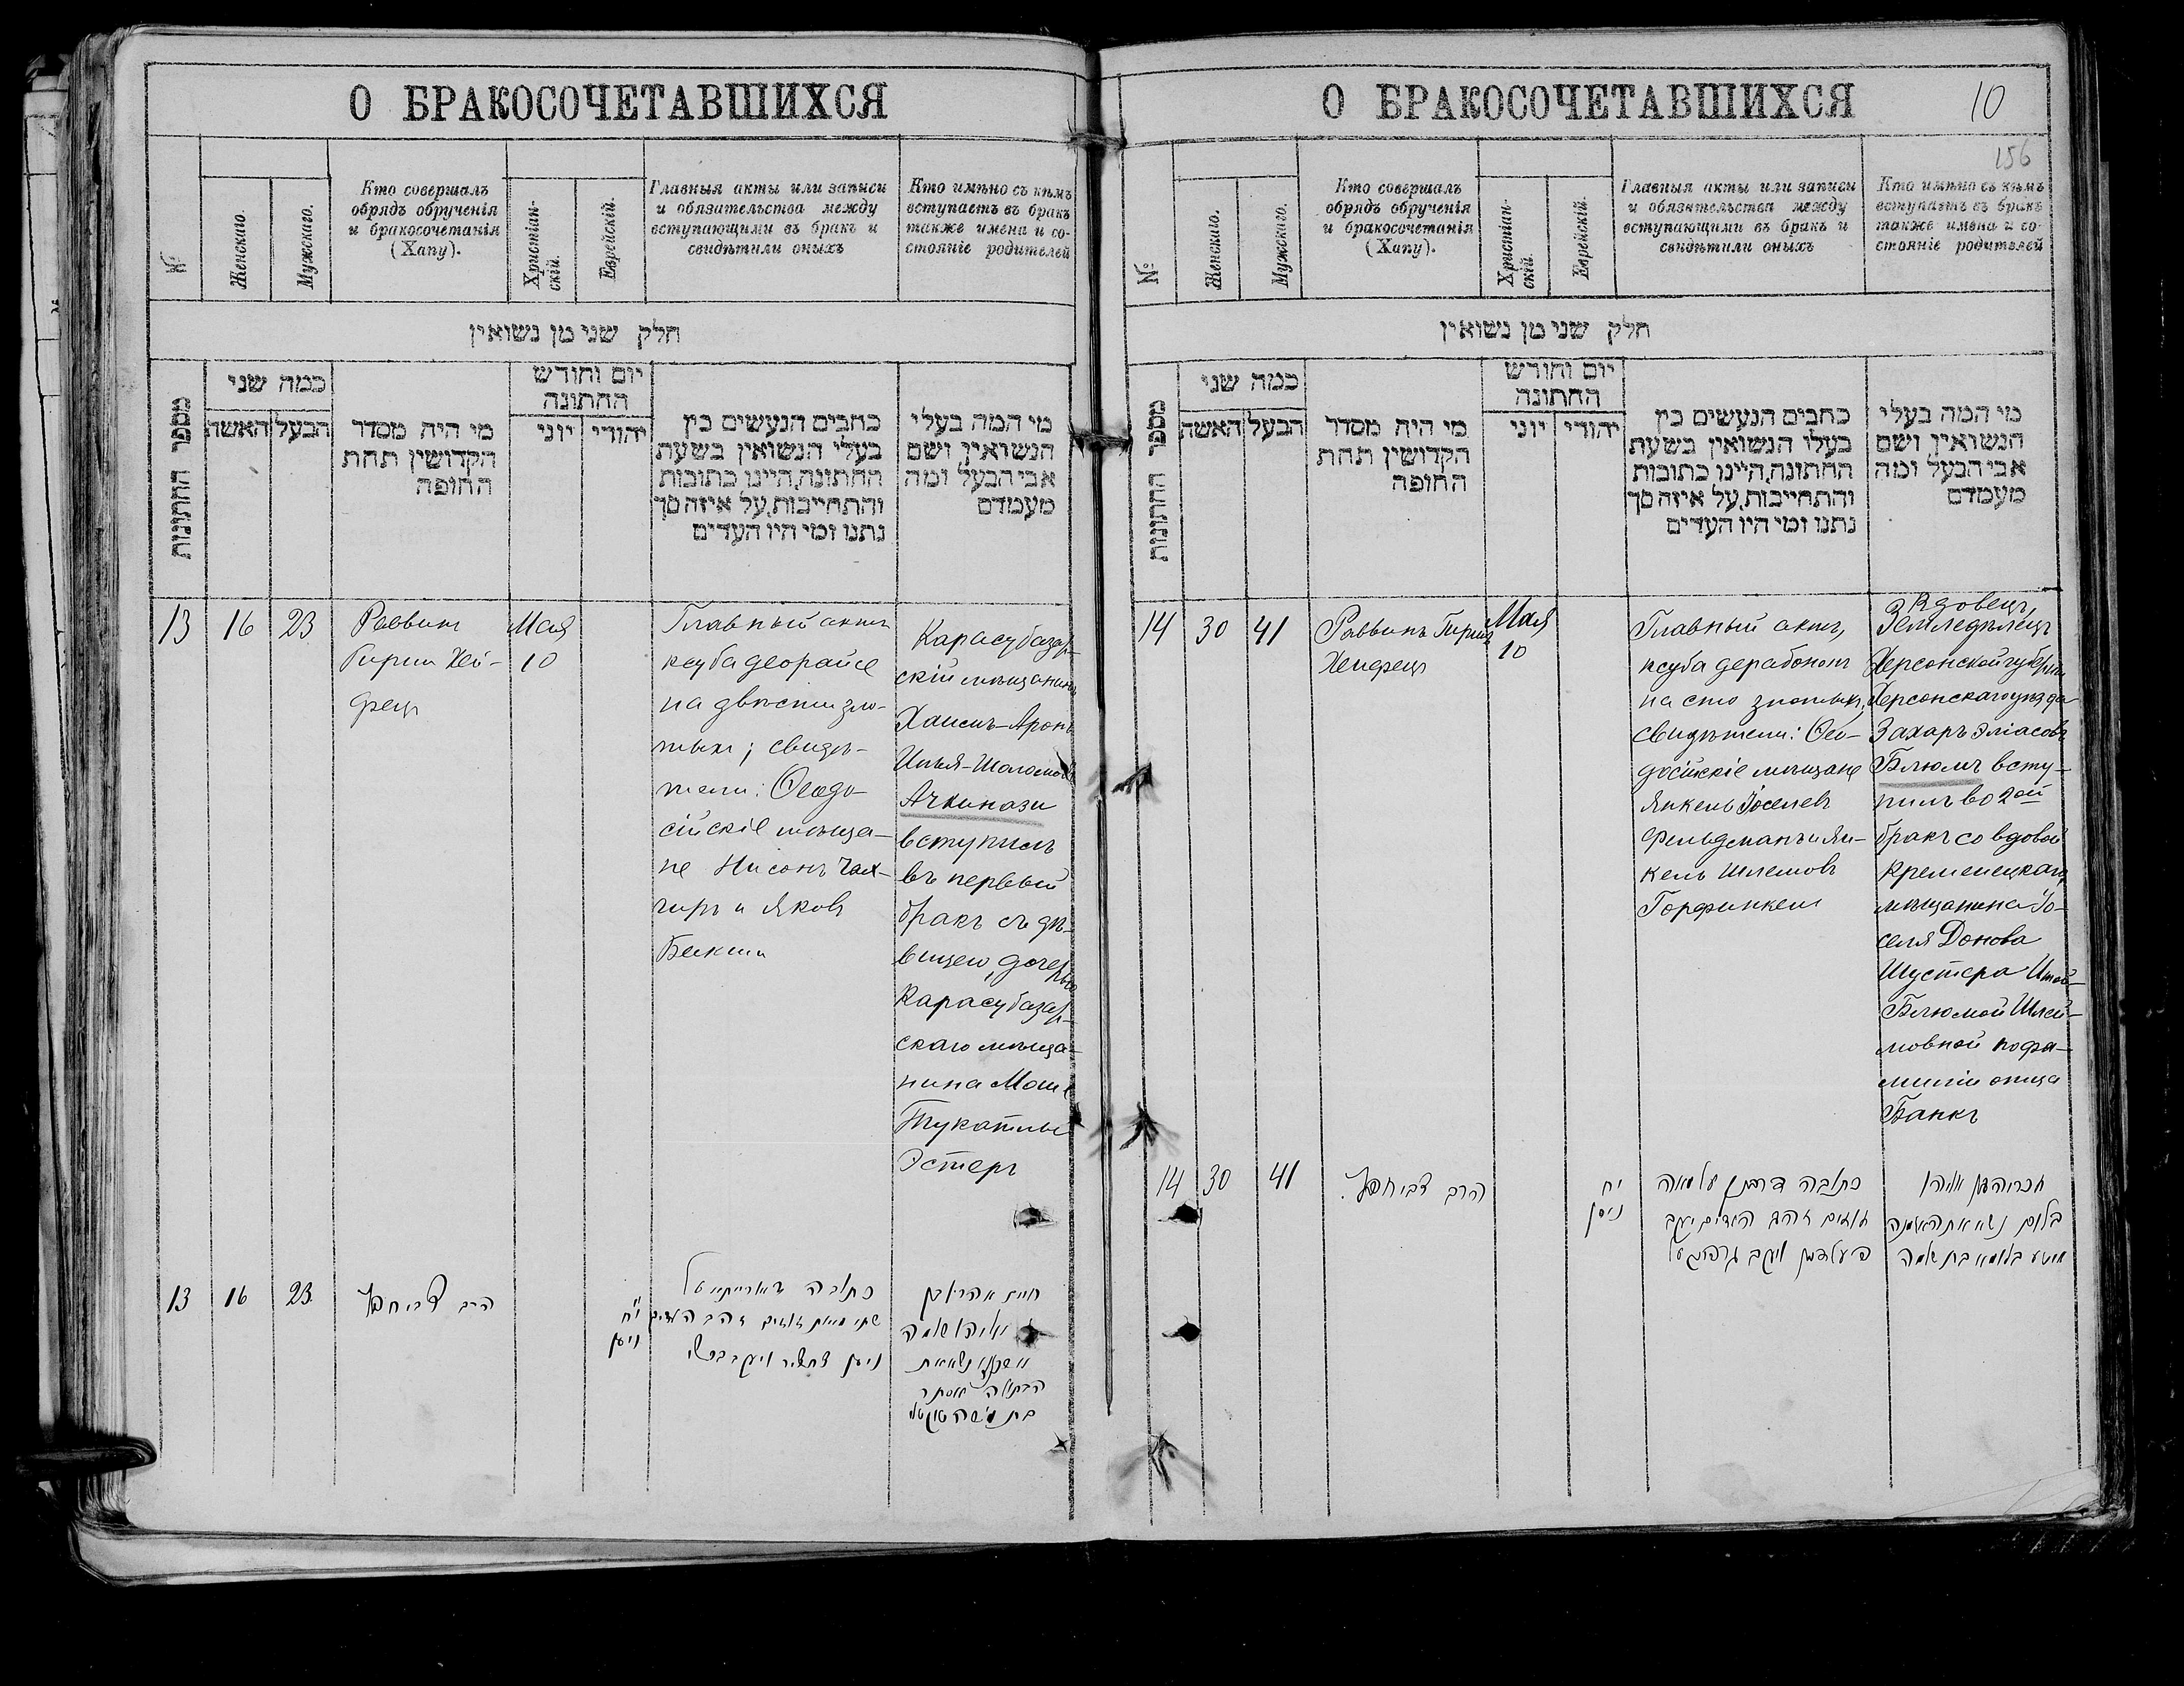 О БРАКОСОЧЕТАВШИХСЯ
№
Женскаго.
Мужскаго.
Кто совершалъ
обрядъ обрученія
и бракосочетанія
(Хапу).
Христіан-
скій.
Еврейскій.
Главныя акты или записи
и обязательства между
вступающими въ бракъ и
свидѣтили оныхъ
Кто имѣно съ кѣмъ
вступаетъ въ бракъ
также имена и со-
стояніе родителей
חלק שני מן נשואין
מספר החתונות
כמה שני
האשה
הבעל
מי היה מסדר
הקדושין תחת
החופה
יום וחודש
החתונה
יוני
יהודי
כתבים הנעשים בין
בעלי הנשואין בשעת
החתונה, היינו כתובות
והתחייבות, על איזה סך
נתנו ומי היו העדים
מי המה בעלי
הנשואין ושם
אבי הבעל ומה
מעמדם
13
16
23
Раввин
Гирш Хей-
фец
Мая
10
Главный актъ
ксуба деорайсе
на двѣсти зло-
тыхъ; свидѣ-
тели: Ѳеодо-
сійскіе мѣща-
не Нисонъ
и Яковъ
Бекши
Карасубазар-
скій мѣщанинъ
Хаимъ-Аронъ
Илья-Шоломовъ
Ачкинази
вступилъ
въ первый
бракъ съ дѣ-
вицею, дочерью
Карасубазар-
скаго мѣща-
нина Моше
Тукатлы
Эстеръ
13
16
23
הרב צבי חפץ
י"ח
ניסן
כתובה דאורייתא על
שתי מאות זהובים העדים
ניסן ויעקב בכשי
חיים אהרן בן
אליהו שלמה
אשכנזי נשא את
הבתולה אסתר
בת משה טוקטלי
О БРАКОСОЧЕТАВШИХСЯ
10
156
№
Женскаго.
Мужскаго.
Кто совершалъ
обрядъ обрученія
и бракосочетанія
(Хапу).
Христіан-
скій.
Еврейскій.
Главныя акты или записи
и обязательства между
вступающими въ бракъ и
свидѣтили оныхъ
Кто имѣно съ кѣмъ
вступаетъ въ бракъ
также имена и со-
стояніе родителей
חלק שני מן נשואין
מספר החתונות
כמה שני
האשה
הבעל
מי היה מסדר
הקדושין תחת
החופה
יום וחודש
החתונה
יוני
יהודי
כתבים הנעשים בין
בעלי הנשואין בשעת
החתונה, היינו כתובות
והתחייבות, על איזה סך
נתנו ומי היו העדים
מי המה בעלי
הנשואין ושם
אבי הבעל ומה
מעמדם
14
30
41
Раввинъ Гиршъ
Хейфецъ
Мая
10
Главный актъ,
ксуба дерабононъ
на сто злотыхъ,
свидѣтели: Ѳео-
досійскіе мѣщане
Янкель Іоселевъ
Фельдманъ и Ян-
кель Шлемовъ
Горфинкель
Вдовецъ,
Земледѣлецъ
Херсонской губерніи
Херсонскаго уѣзда
Захаръ Эліасовъ
Блюмъ всту-
пилъ во 2ой
бракъ со вдовой
Кременецкаго
мѣщанина Іо-
селя Донова
Шустера Итой-
Блюмой Шлей-
мовной по фа-
миліи отца
Банкъ
14
30
41
הרב צבי חפץ.
יח
ניסן
כתובה דרבנן על מאה
זהובים העדים יעקב
פעלדמן ויעקב גרפינקעל
זכריה בן אליהו
בלום נשא את האלמנה
איטע בלומא בת שלמה